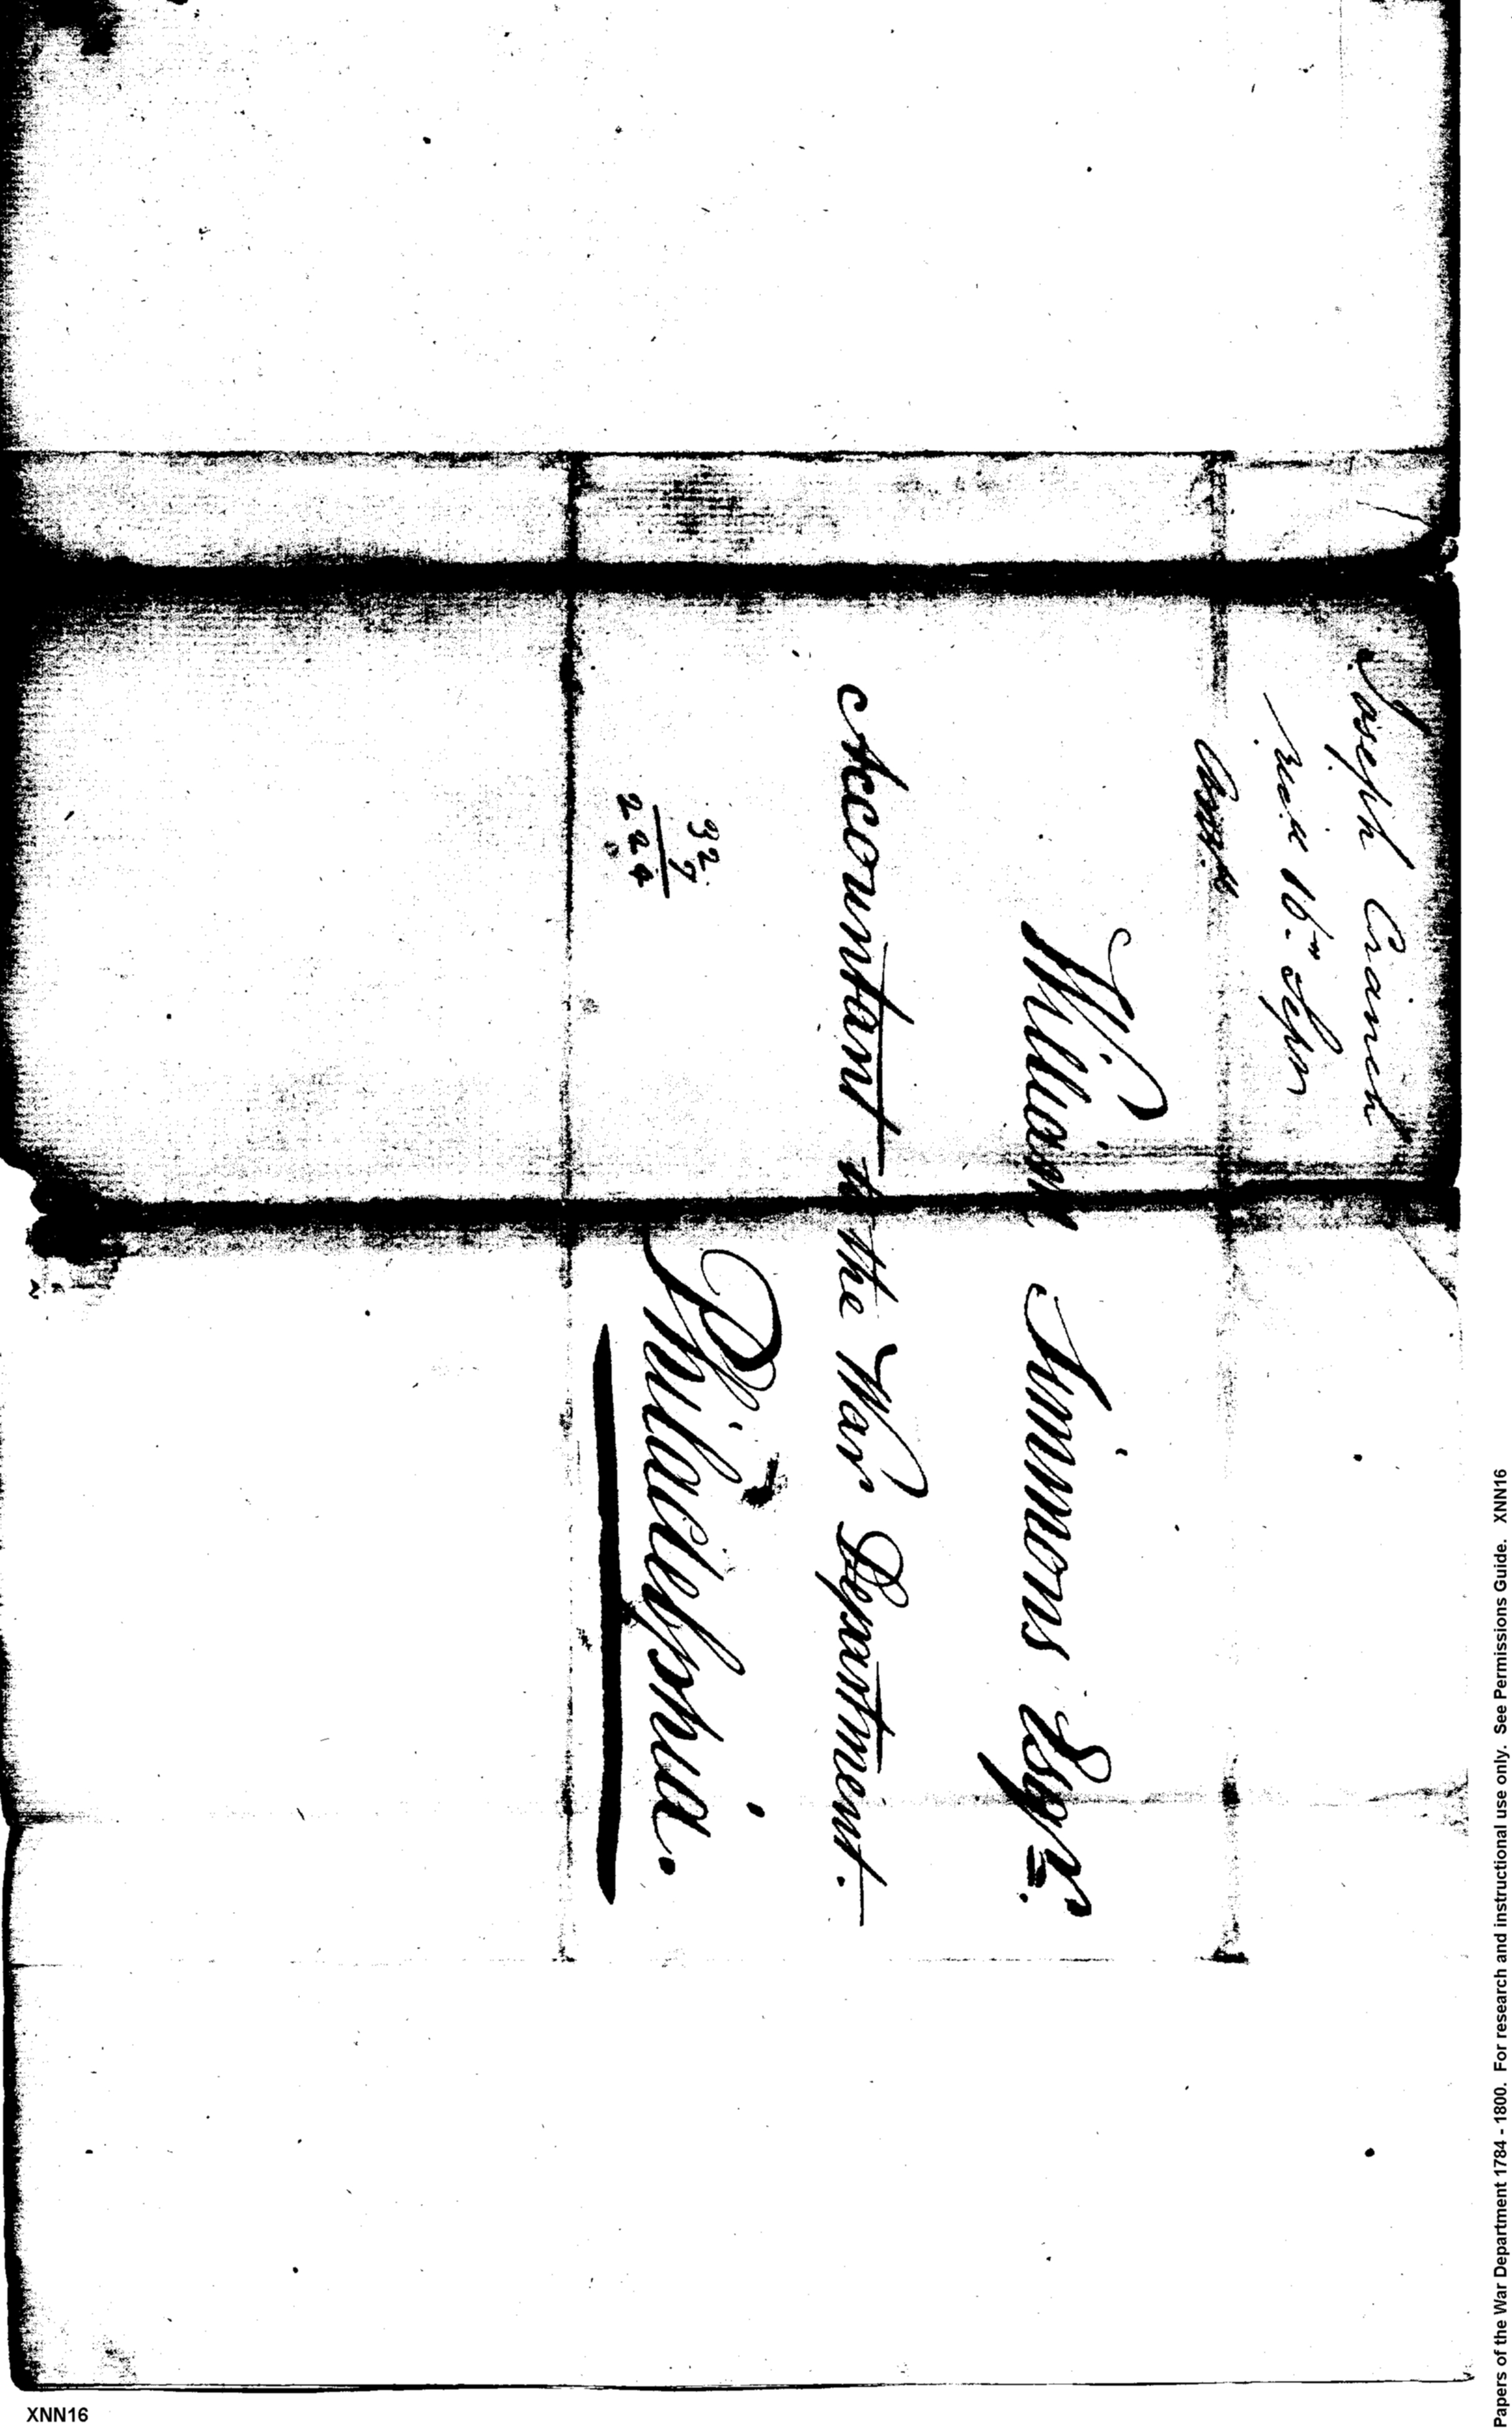 Joseph Cranch
16th Septr
William Simmons Esqr.
Accountant to the War Department.
Philadelphia.
32
7
224
Papers of the War Department 1784 - 1800. For research and instructional use only. See Permissions Guide. XNN16
XNN16